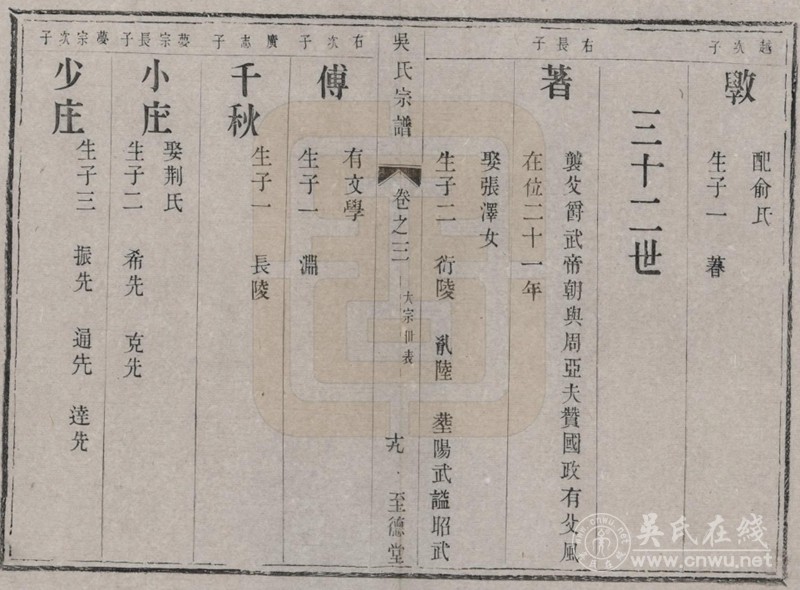 越次子
斆
配俞氏
生子一 萶
三十二世
右長子
著
襲父爵武帝朝與周亞夫贊國政有父風
在位二十一年
娶張澤女
生子二 衍陵 汎陸 塟陽武謚昭武
吳氏宗譜
卷之三
大宗世表
十九
至德堂
右次子
傅
有文學
生子一 淵
廣志子
千秋
生子一 長陵
夢宗長子
小庄
娶荆氏
生子二 希先 克先
夢宗次子
少庄
生子三 振先 通先 達先
吴氏在线
www.cnwu.net